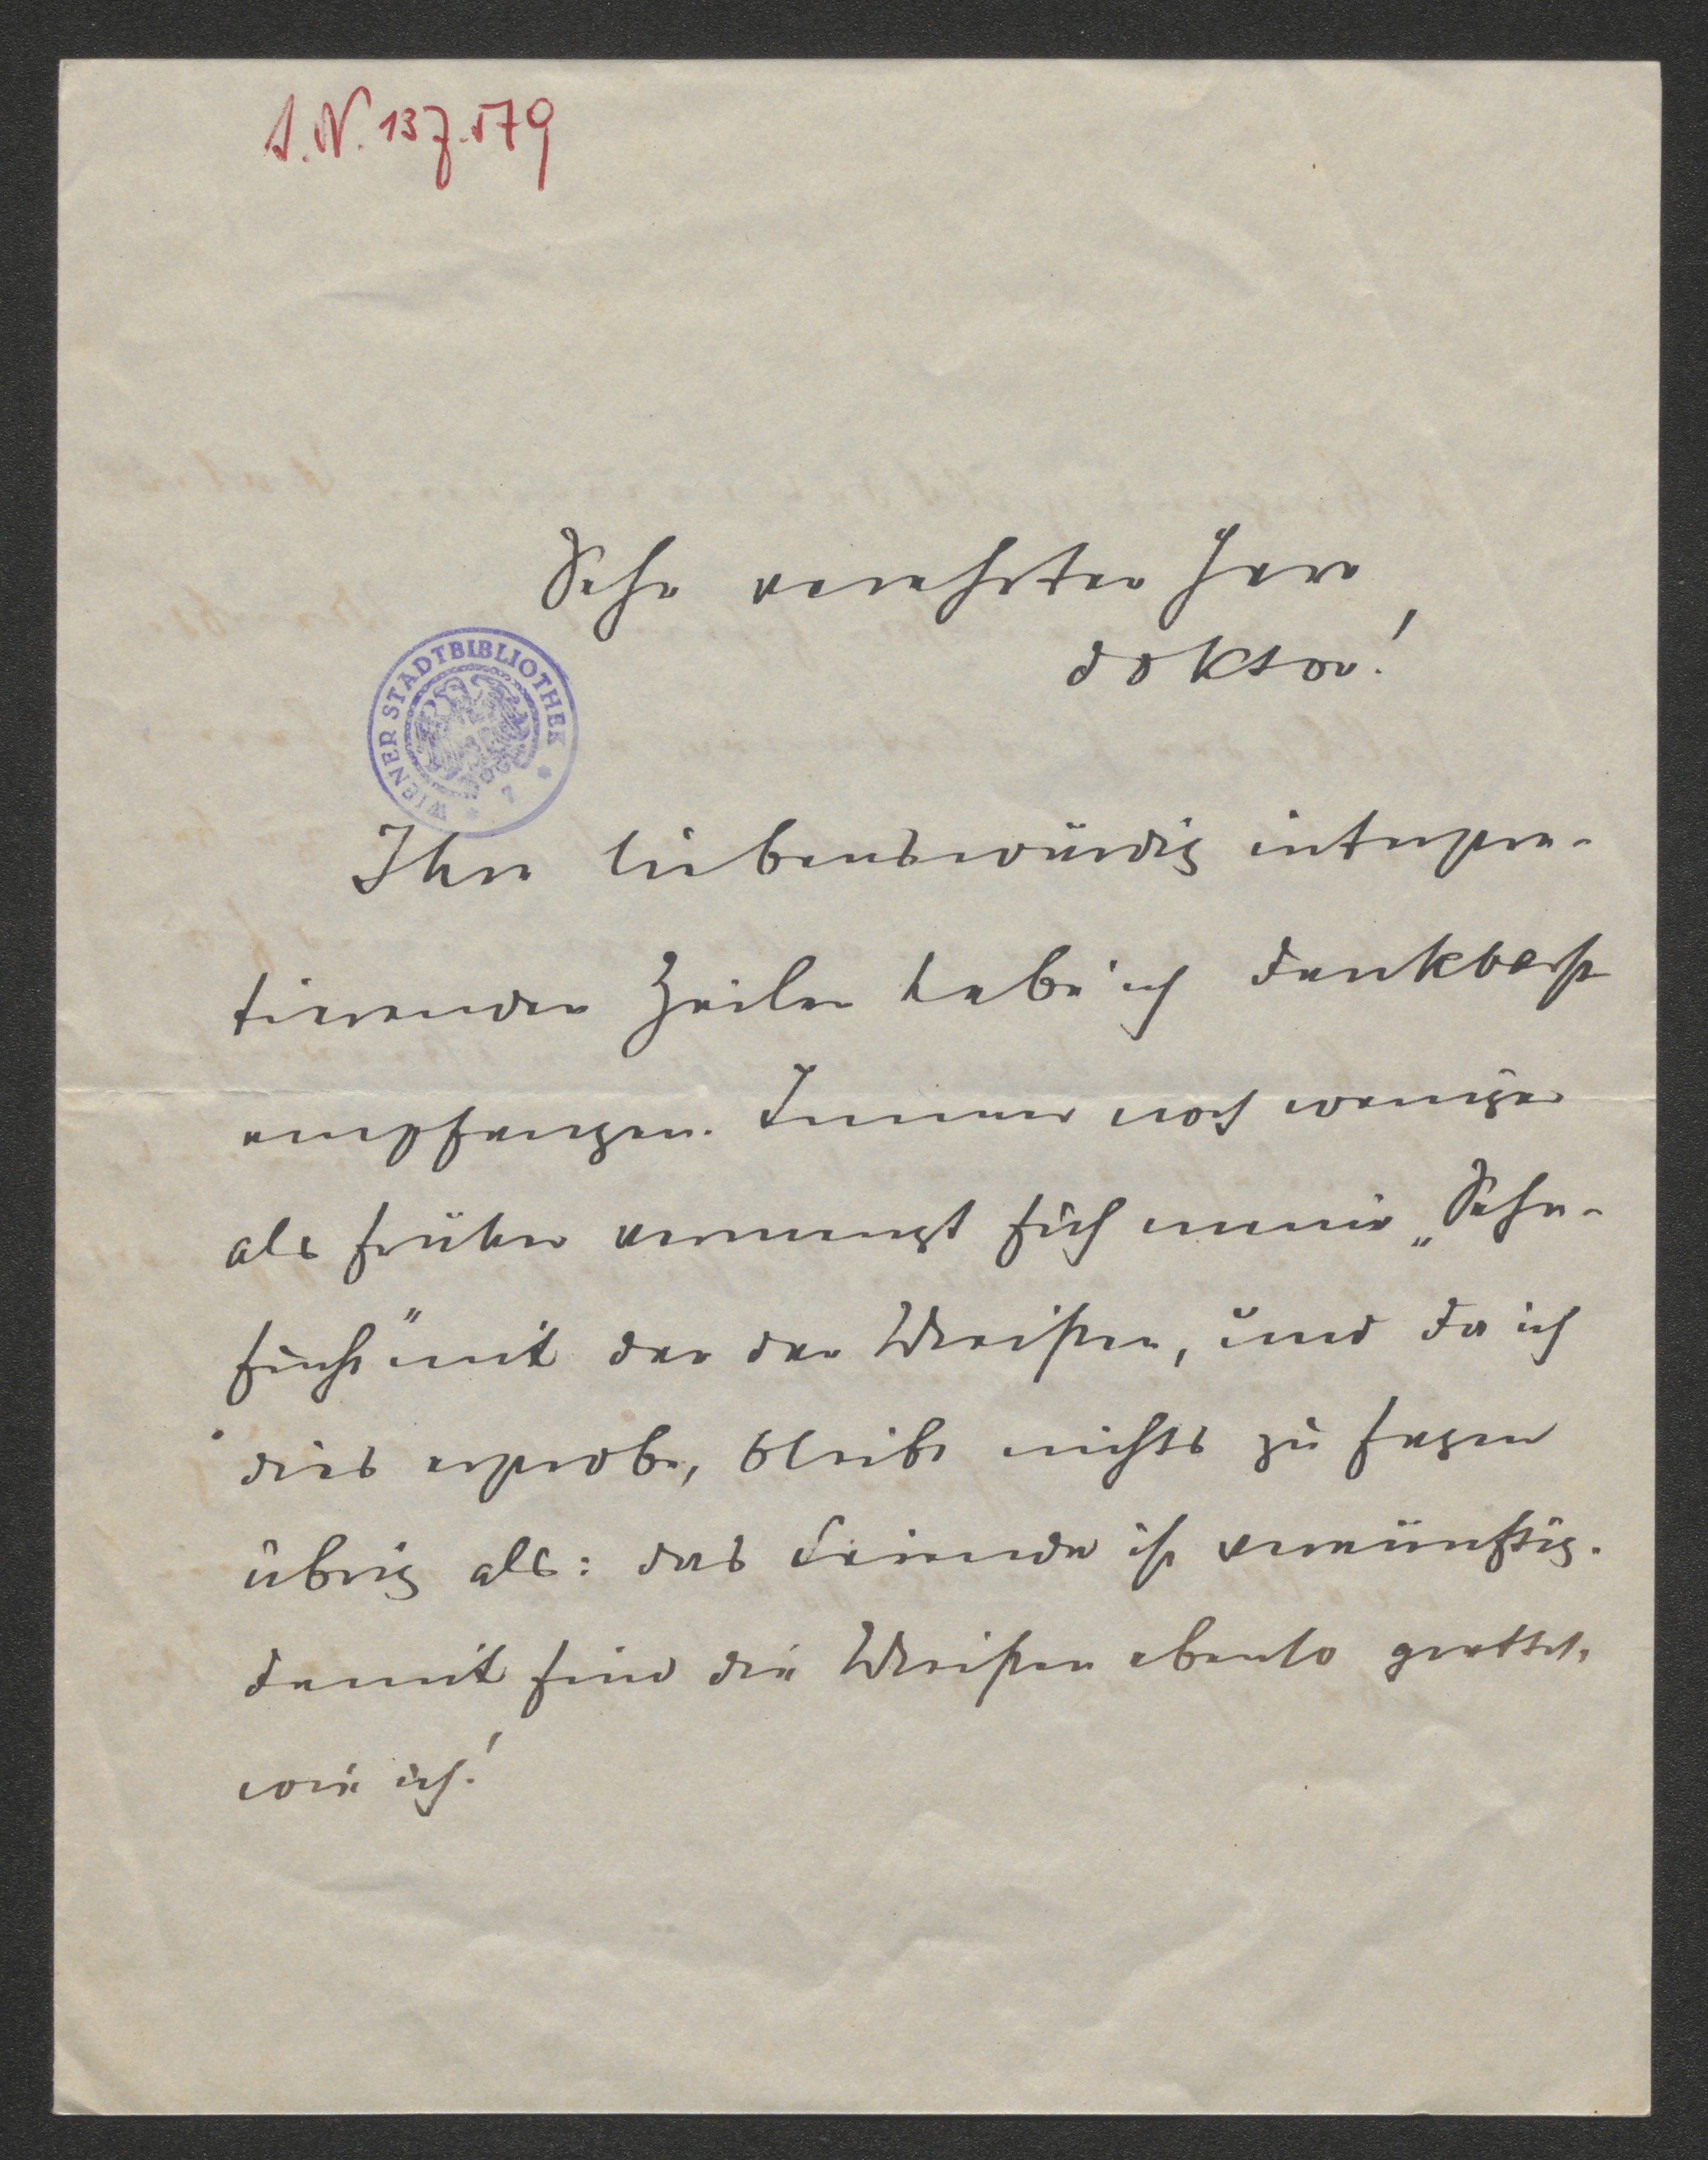 I.N. 137.179
Sehr verehrter Herr
Doktor!
WIENER STADTBIBLIOTHEK
Ihre liebenswürdig interpre-
tierenden Zeilen habe ich dankbarst
empfangen. Immer noch weniger
als früher vermengt sich meine „Sehn-
sucht" mit der der Meisten, und da ich
dies erprobe, bleibt nichts zu sagen
übrig als: das Seiende ist vernünftig.
Damit sind die Meisten ebenso gerettet,
wie ich!